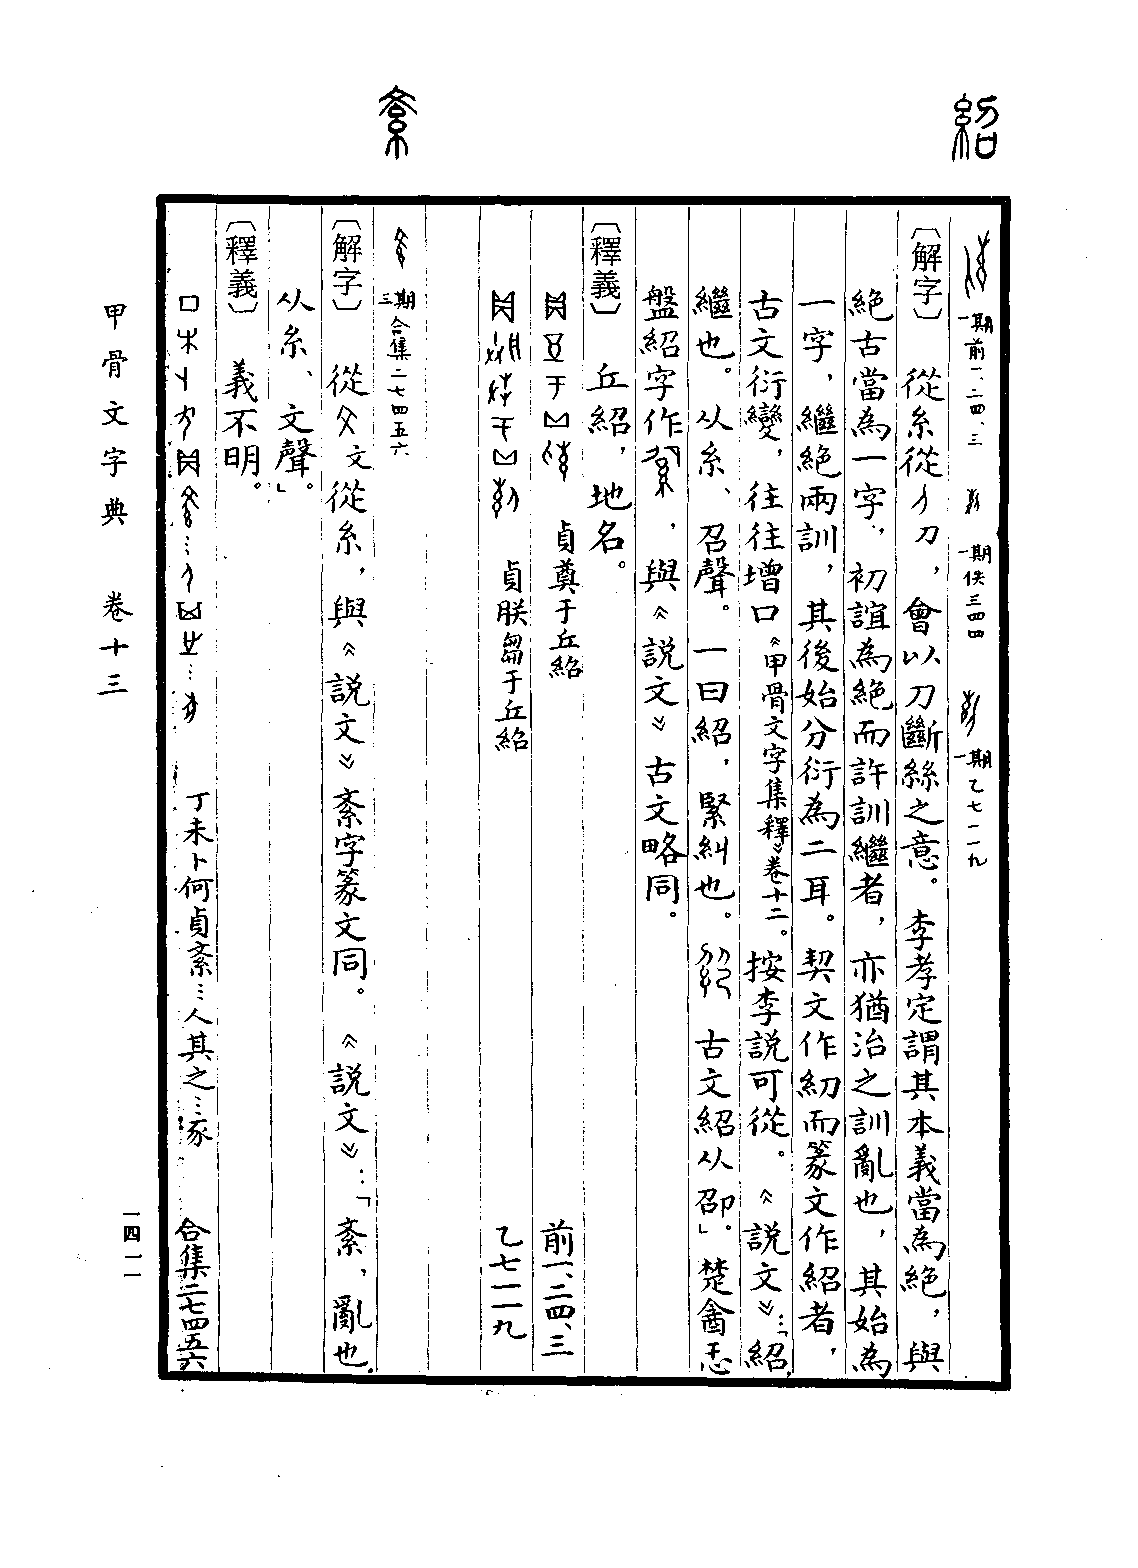 紹
一期前一、二四、三 一期佚三四四 一期乙七一一九
〔解字〕從糸從刀，會以刀斷絲之意。李孝定謂其本義當為絕，與
絕古當為一字，初誼為絕而許訓繼者，亦猶治之訓亂也，其始為
一字，繼絕兩訓，其後始分衍為二耳。契文作紉而篆文作紹者，
古文衍變，往往增口《甲骨文字集釋》卷十二。按李說可從。《說文》：「紹，
繼也。从糸、召聲。一曰紹，緊糾也。 古文紹从卲」。楚酓忎
盤紹字作 ，與《說文》古文略同。
〔釋義〕丘紹，地名。
貞奠于丘紹 前一、二四、三
貞朕芻于丘紹 乙七一一九
紊
三期合集二七四五六
〔解字〕從文從糸，與《說文》紊字篆文同。《說文》：「紊，亂也，
从糸、文聲」。
〔釋義〕義不明。
丁未卜何貞紊…人其之…豕 合集二七四五六
甲骨文字典 卷十三
一四一一